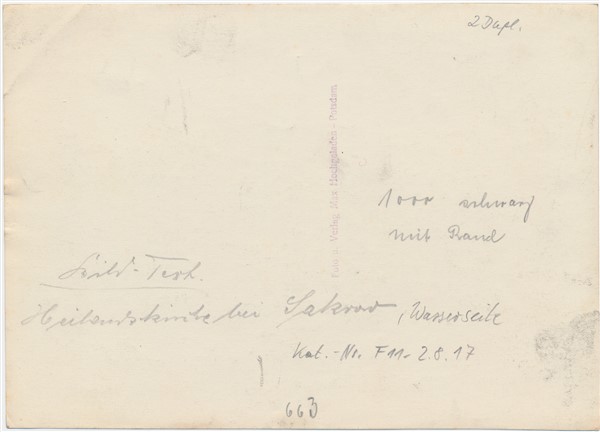 2 Dupl.
Foto u. Verlag Max Hochgeladen - Potsdam
1000 schwarz
mit Rand
Bild-Text.
Heilandskirche bei Sakrow, Wasserseite
Kat.-Nr. F11-2.8.17
663